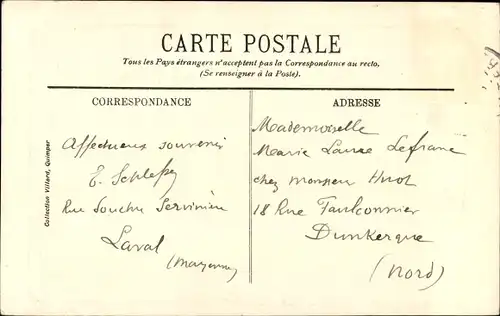 CARTE POSTALE
Tous les Pays étrangers n'acceptent pas la Correspondance au recto.
(Se renseigner à la Poste).
CORRESPONDANCE
Affectueux souvenir
E.
Rue Souchu Servinière
Laval
(Mayenne)
Collection Villard, Quimper
ADRESSE
Mademoiselle
Marie Laure
chez monsieur Huot
18 Rue Faulconnier
Dunkerque
(Nord)